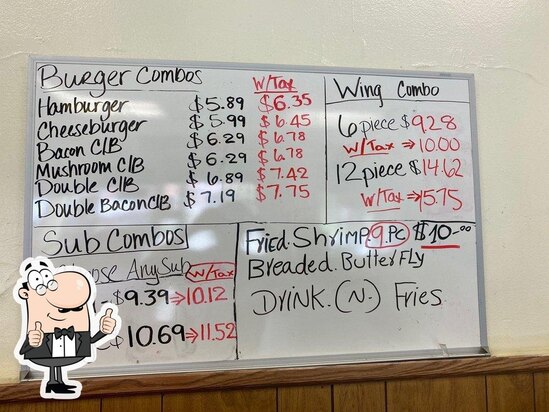 Burger Combos W/Tax
Hamburger $5.89 $6.35
Cheeseburger $5.99 $6.45
Bacon C/B $6.29 $6.78
Mushroom C/B $6.29 $6.78
Double C/B $6.89 $7.42
Double Bacon C/B $7.19 $7.75
Wing Combo
6 piece $9.28
W/Tax ⇒ 10.00
12 piece $14.62
W/Tax ⇒ 15.75
Sub Combos
Any Sub W/Tax
$9.39 ⇒ 10.12
10.69 ⇒ 11.52
Fried. Shrimp 9.PC $10-.00
Breaded. ButterFly
DRINK. (N.) Fries